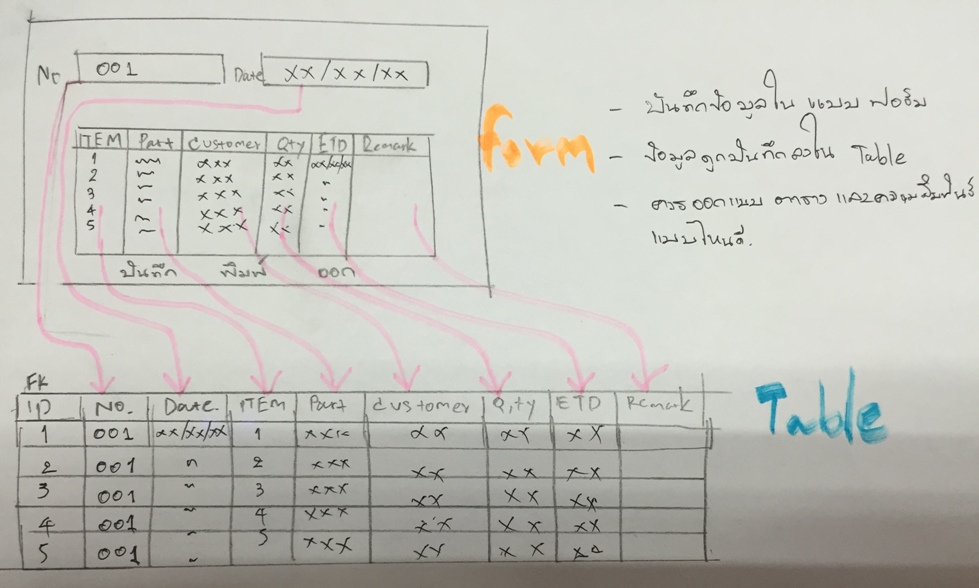 No 001 Date xx/xx/xx
ITEM Part Customer Qty ETD Remark
1 xxx xx xx/xx/xx
2 xxx xx "
3 xxx xx "
4 xxx xx "
5 xxx xx "
บันทึก พิมพ์ ออก
Form
- บันทึกข้อมูลใน แบบ ฟอร์ม
- ข้อมูลถูกบันทึกลงใน Table
- ควรออกแบบ ตาราง และความสัมพันธ์
แบบไหนดี.
FK
ID No. Date. ITEM Part Customer Q,ty ETD Remark
1 001 xx/xx/xx 1 xxx xx xx xx
2 001 " 2 xxx xx xx xx
3 001 " 3 xxx xx xx xx
4 001 " 4 xxx xx xx xx
5 001 " 5 xxx xx xx xx
Table